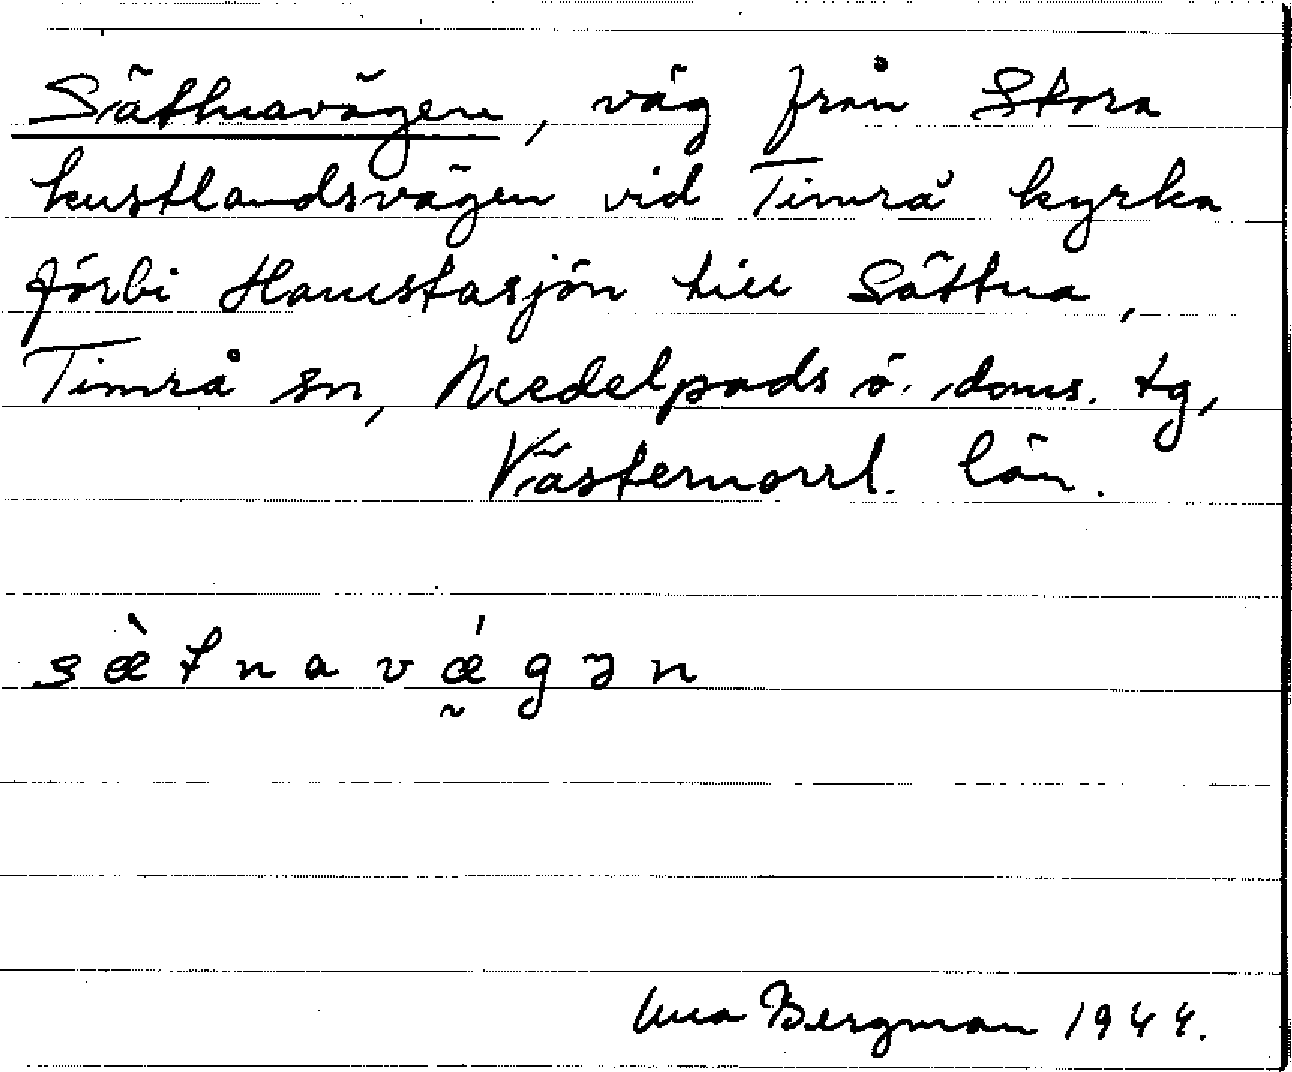 Sättnavägen, väg från Stora
kustlandsvägen vid Timrå kyrka
förbi Hamstasjön till Sättna,
Timrå sn, Medelpads ö. doms. tg,
Västernorrl. län.
sæ̀tnavǽ̰gən
Bergman 1944.